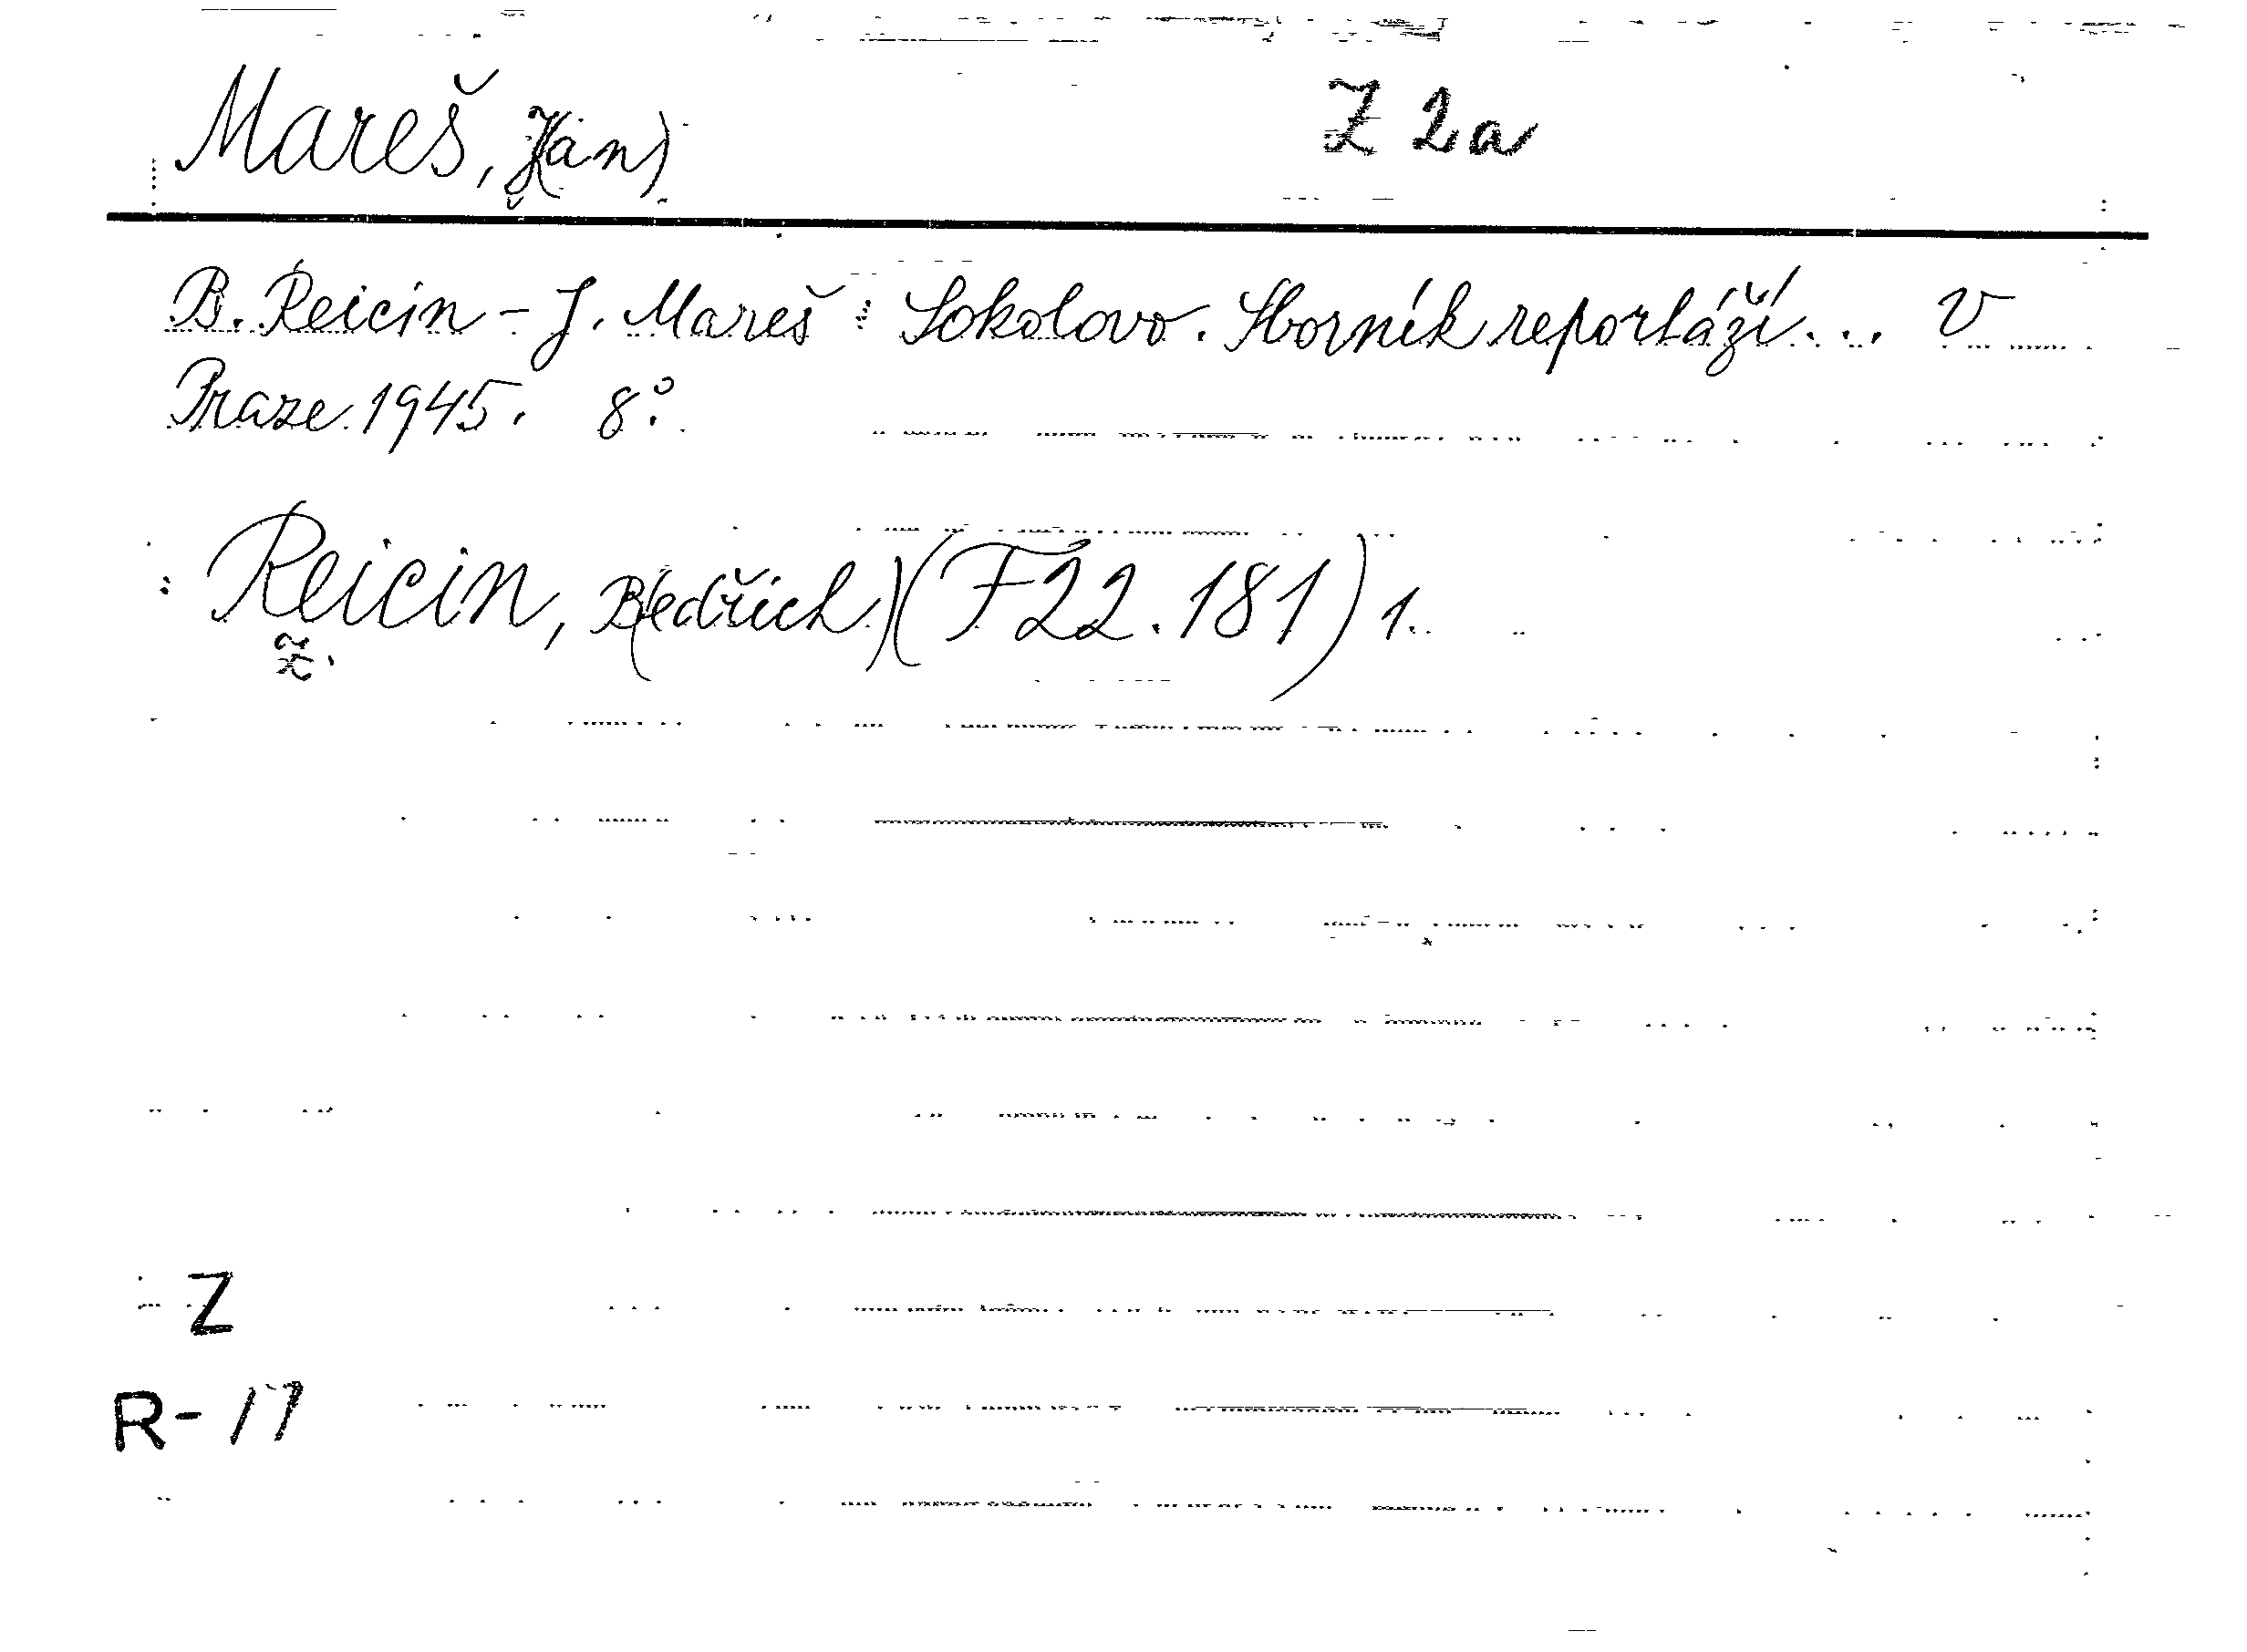 Mareš, J(an) Z 2a
B. Reicin - J. Mareš: Sokolovo. Sborník reportáží... V
Praze 1945. 8°.
Reicin, B(edřich) (F 22.181) 1.
ž.
Z
R - 17